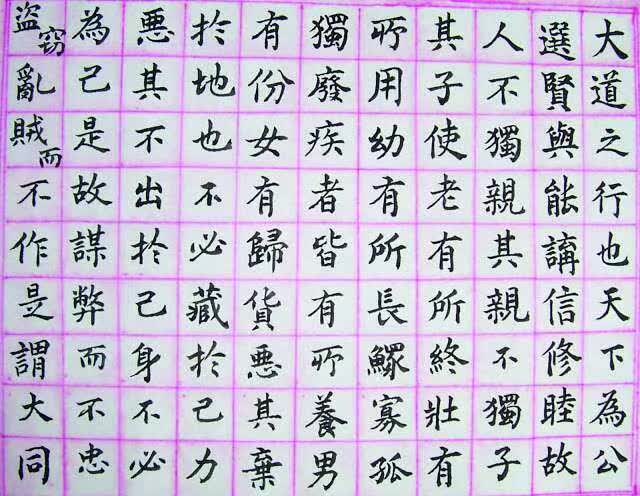 大道之行也天下為公
選賢與能講信修睦故
人不獨親其親不獨子
其子使老有所終壯有
所用幼有所長鰥寡孤
獨廢疾者皆有所養男
有份女有歸貨惡其棄
於地也不必藏於己力
惡其不出於己身不必
為己是故謀弊而不忠
盜窃亂賊而不作是謂大同